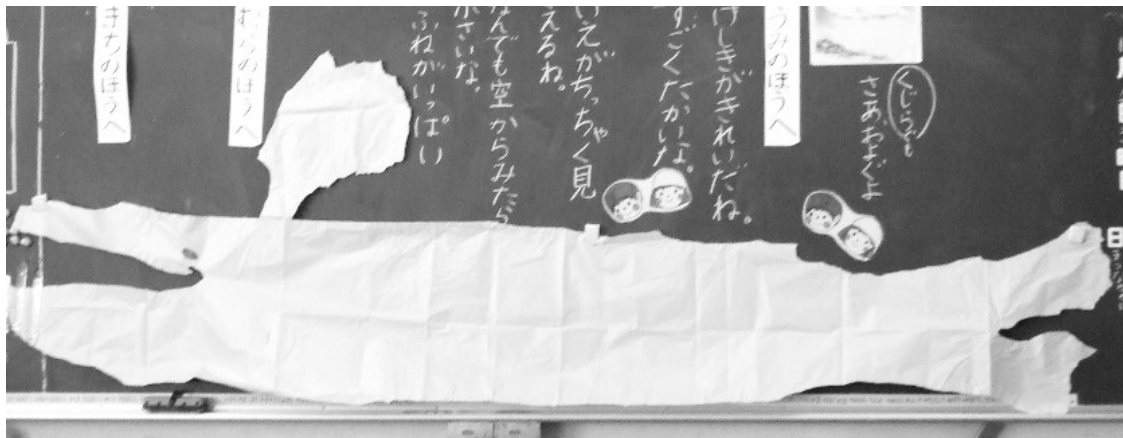 くじらぐも
うみのほうへ
けしきがきれいだね。
すごくたかいよ。
いえがちっちゃく見
えるね。
なんでも空からみたら
小さいな。
ふねがいっぱい
むらのほうへ
まちのほうへ